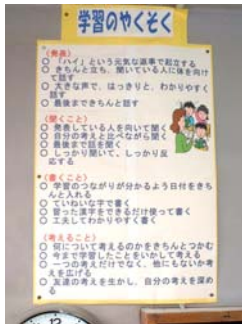 学習のやくそく
(発表)
○ 「ハイ」という元気な返事で起立する
○ きちんと立ち、聞いている人に体を向け
て話す
○ 大きな声で、はっきりと、わかりやすく
話す
○ 最後まできちんと話す
(聞くこと)
○ 発表している人を向いて聞く
○ 自分の考えと比べながら聞く
○ 最後まで話を聞く
○ しっかり聞いて、しっかり反
応する
(書くこと)
○ 学習のつながりが分かるよう日付をきち
んと入れる
○ ていねいな字で書く
○ 習った漢字をできるだけ使って書く
○ 工夫してわかりやすく書く
(考えること)
○ 何について考えるのかをきちんとつかむ
○ 今まで学習したことをいかして考える
○ 一つの考えだけでなく、他にもないか考
えを広げる
○ 友達の考えを生かし、自分の考えを深め
る